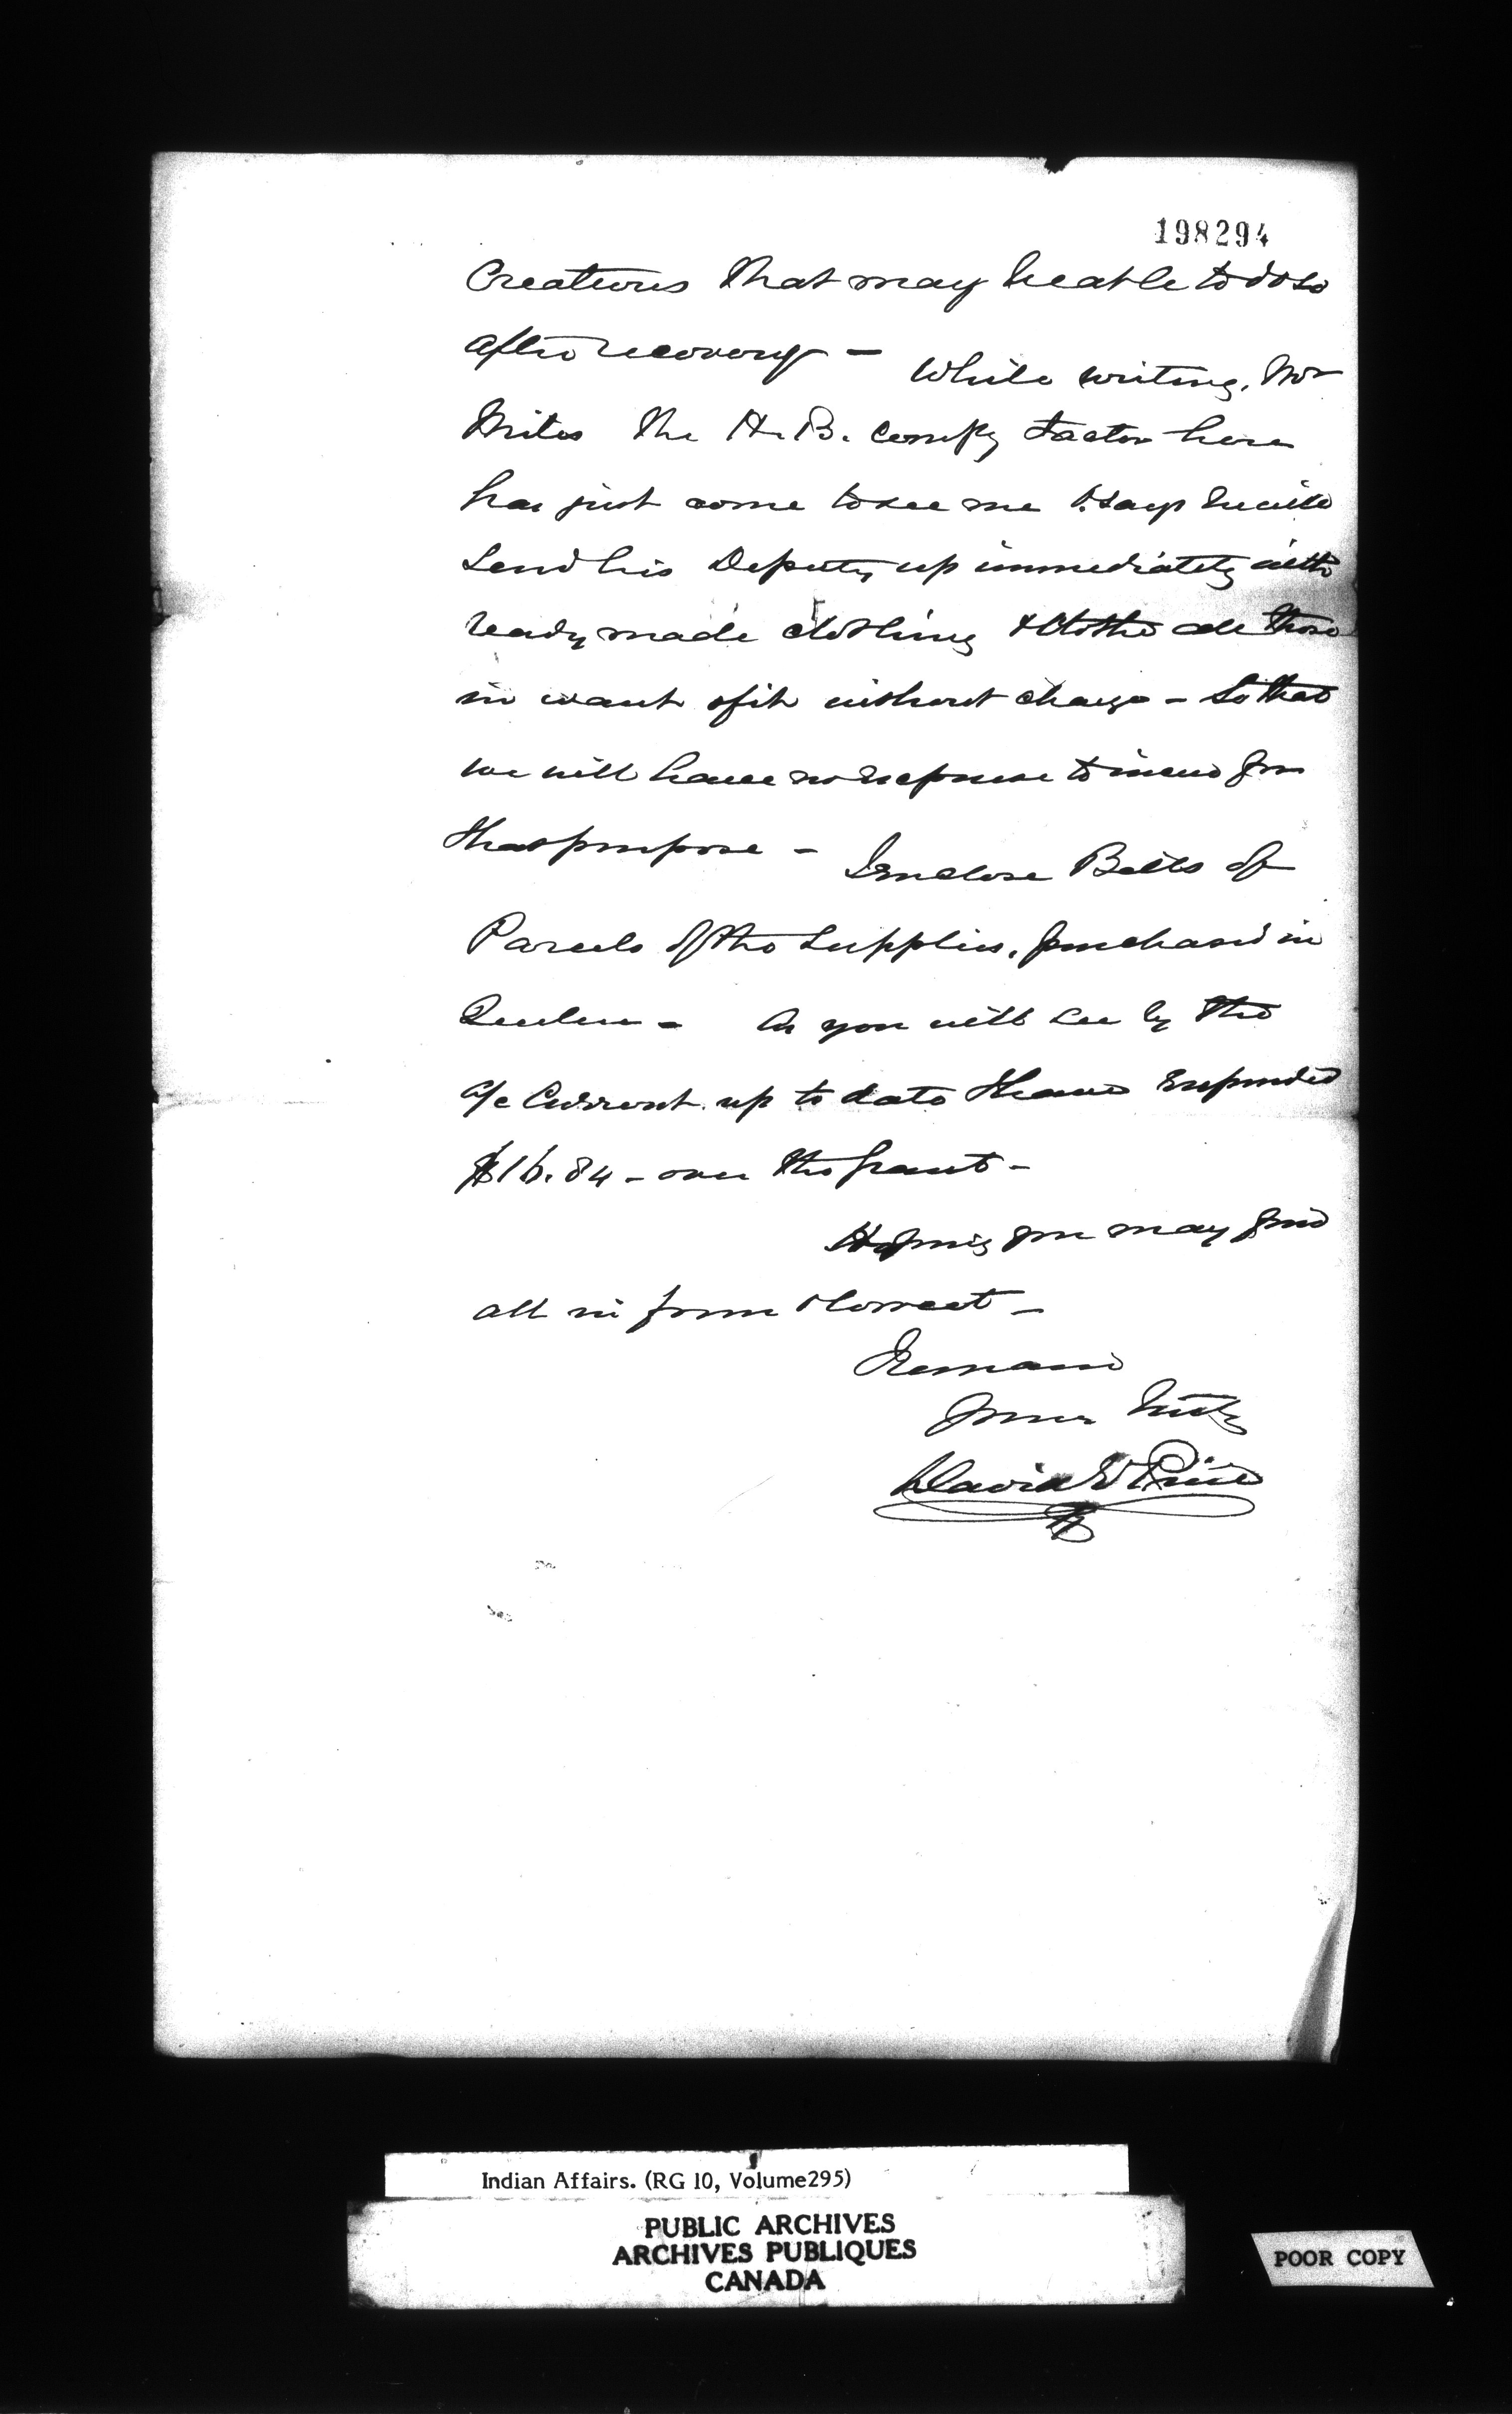 198294
Creatures that may be able to do so
after recovery – While writing, Mr
the H. B. Compy Factor here
has just come to see me & says he will
send his Deputy up immediately with
ready made clothing & clothe all those
in want of it without charge – so that
we will have no expense to incur for
that purpose – I enclose Bills of
Parcels of the Supplies, purchased in
Quebec – As you will see by the
a/c Current up to date I have expended
$16.84 – over the grant –
Hoping you may find
all in form & correct –
I remain
Yours truly
David E Price
Indian Affairs. (RG 10, Volume295)
PUBLIC ARCHIVES
ARCHIVES PUBLIQUES
CANADA
POOR COPY